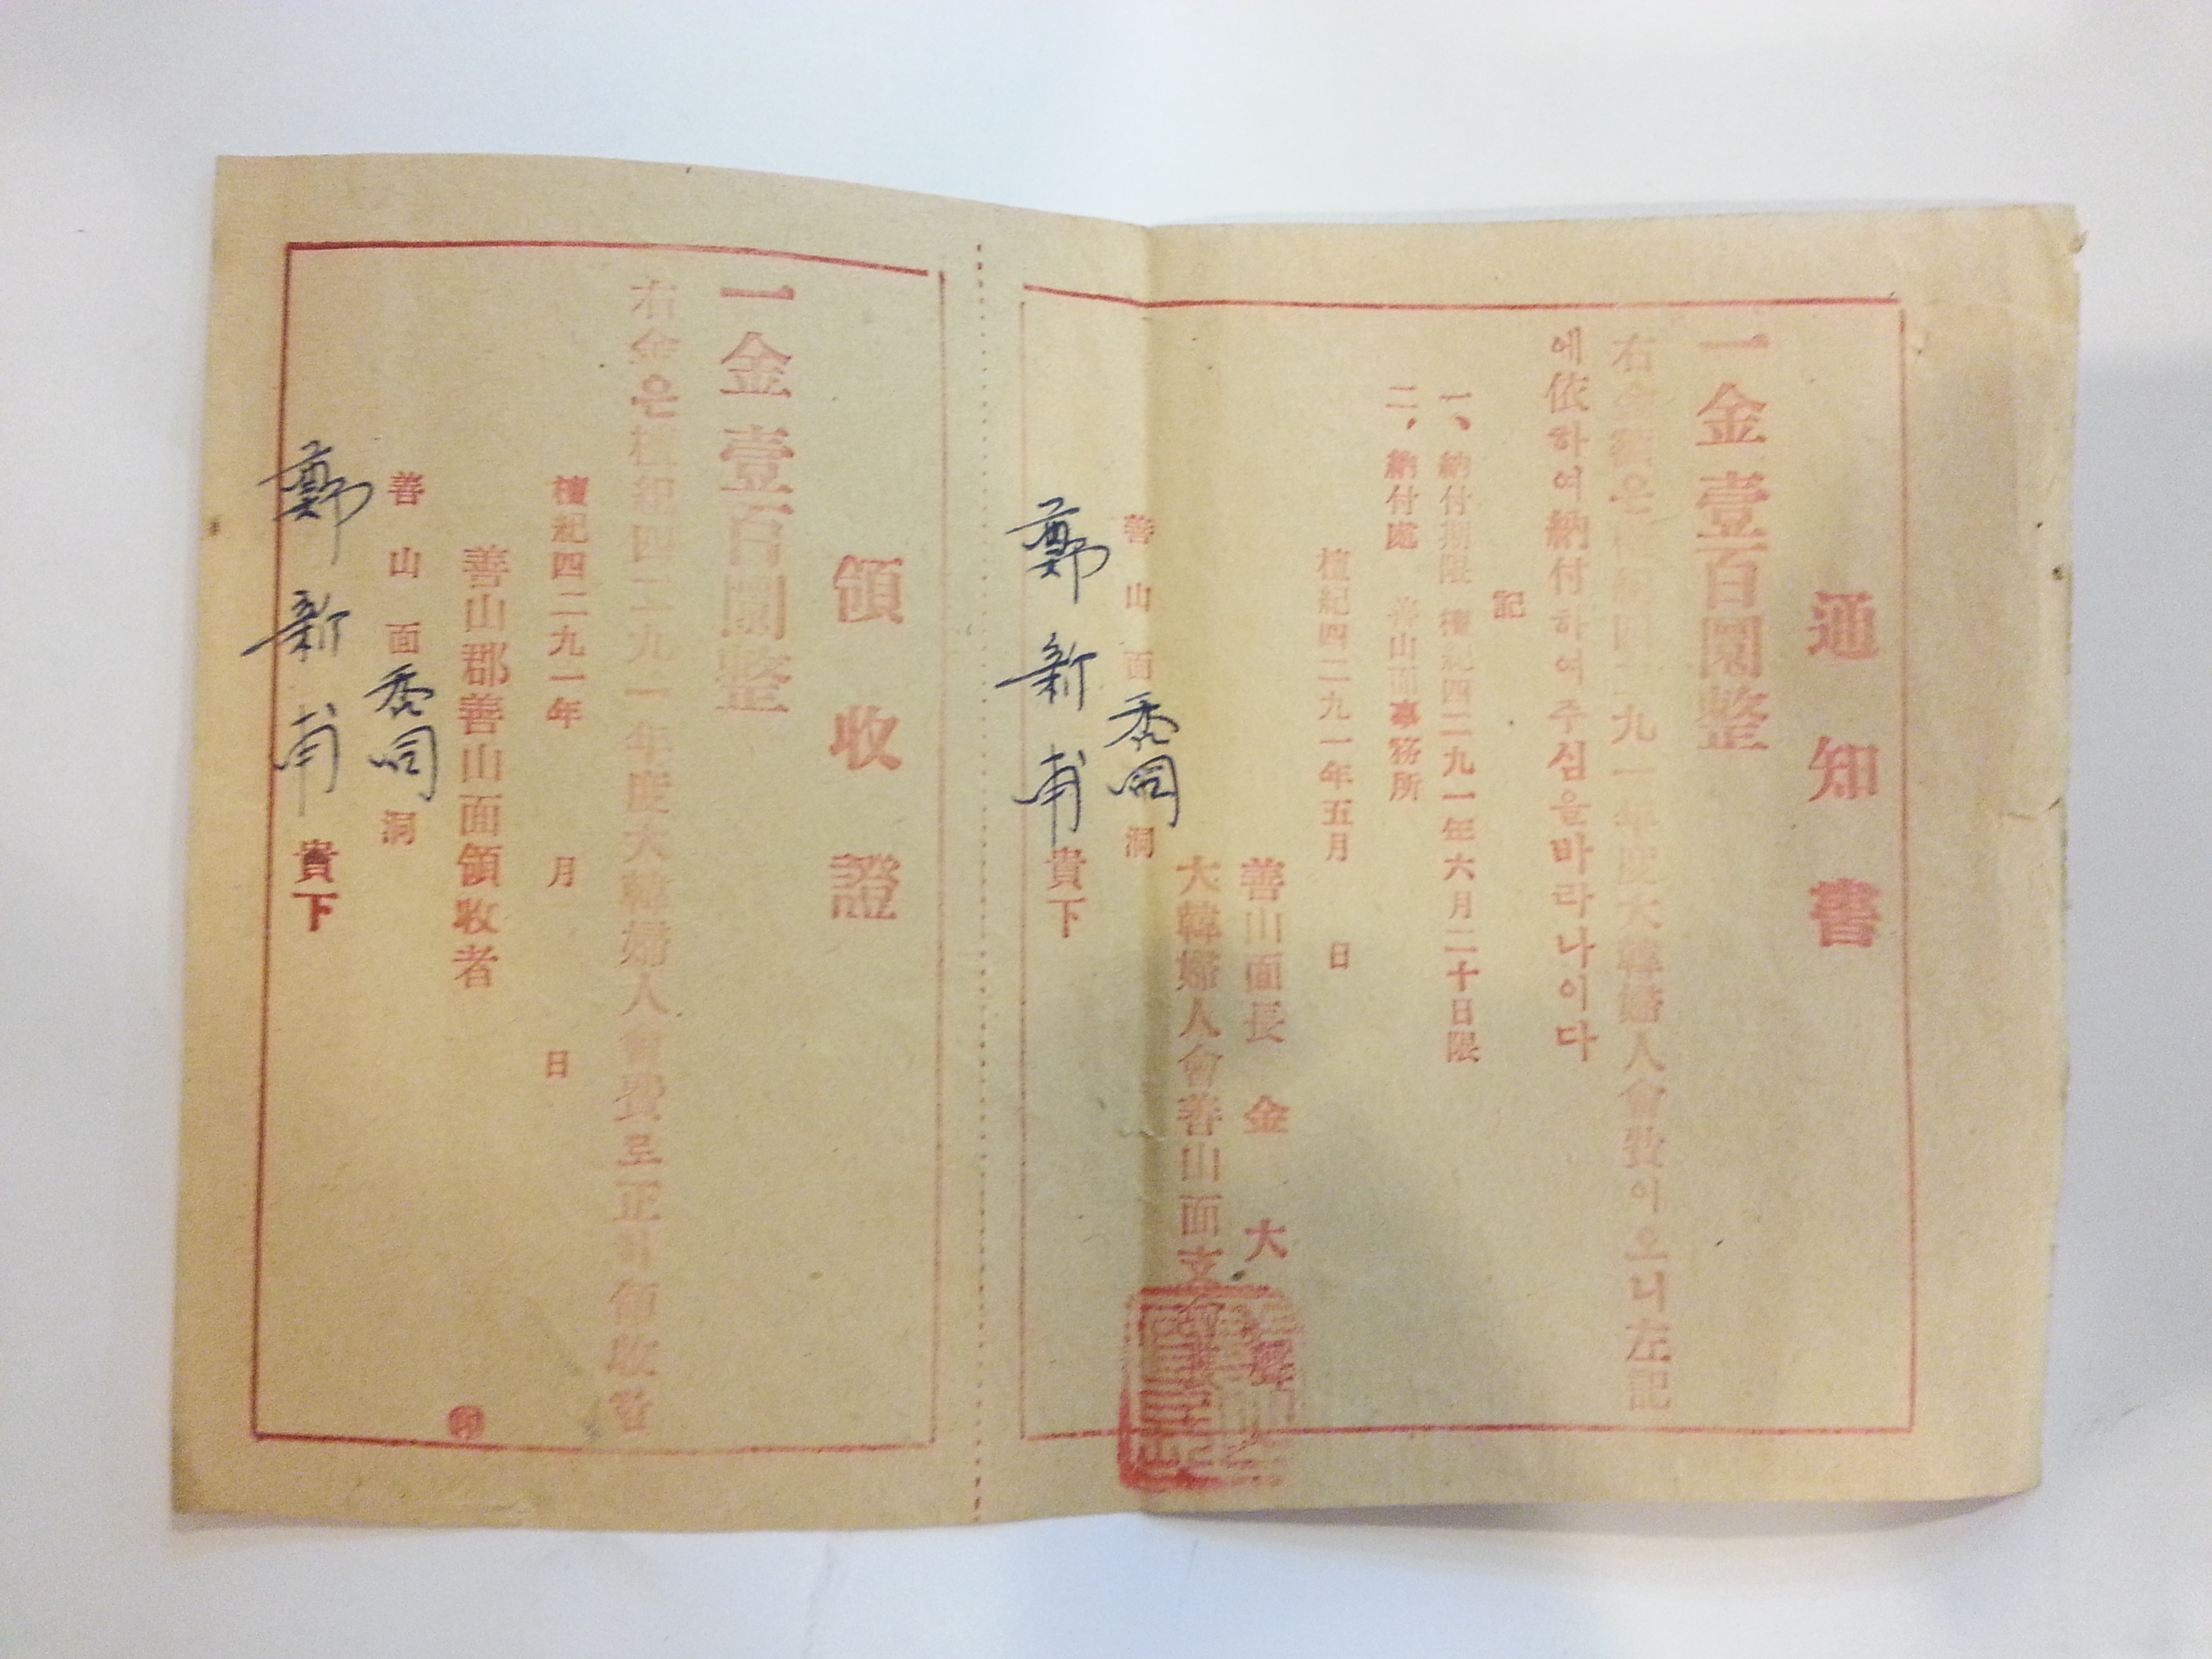 通知書
一金壹百圜整
右金額은檀紀四二九一年度大韓婦人會費이오니左記
에依하여納付하여주심을바라나이다
記
一、納付期限 檀紀四二九一年六月二十日限
二、納付處 善山面事務所
檀紀四二九一年五月 日
善山面長 金大
大韓婦人會善山面支
善山面 洞
鄭新甫貴下
領收證
一金壹百圜整
右金은檀紀四二九一年度大韓婦人會費로正히領收함
檀紀四二九一年 月 日
善山郡善山面領收者 印
善山面 洞
鄭新甫貴下